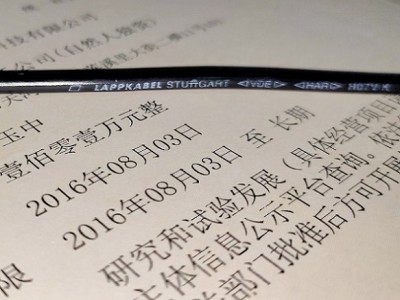 科技有限公司
公司(自然人独资)
LAPPKABEL STUTTGART ◁VDE▷ ◁HAR▷ H07V-K
玉中
壹佰零壹万元整
2016年08月03日
2016年08月03日 至 长期
研究和试验发展(具体经营项目
主体信息公示平台查询。依
部门批准后方可开展
限